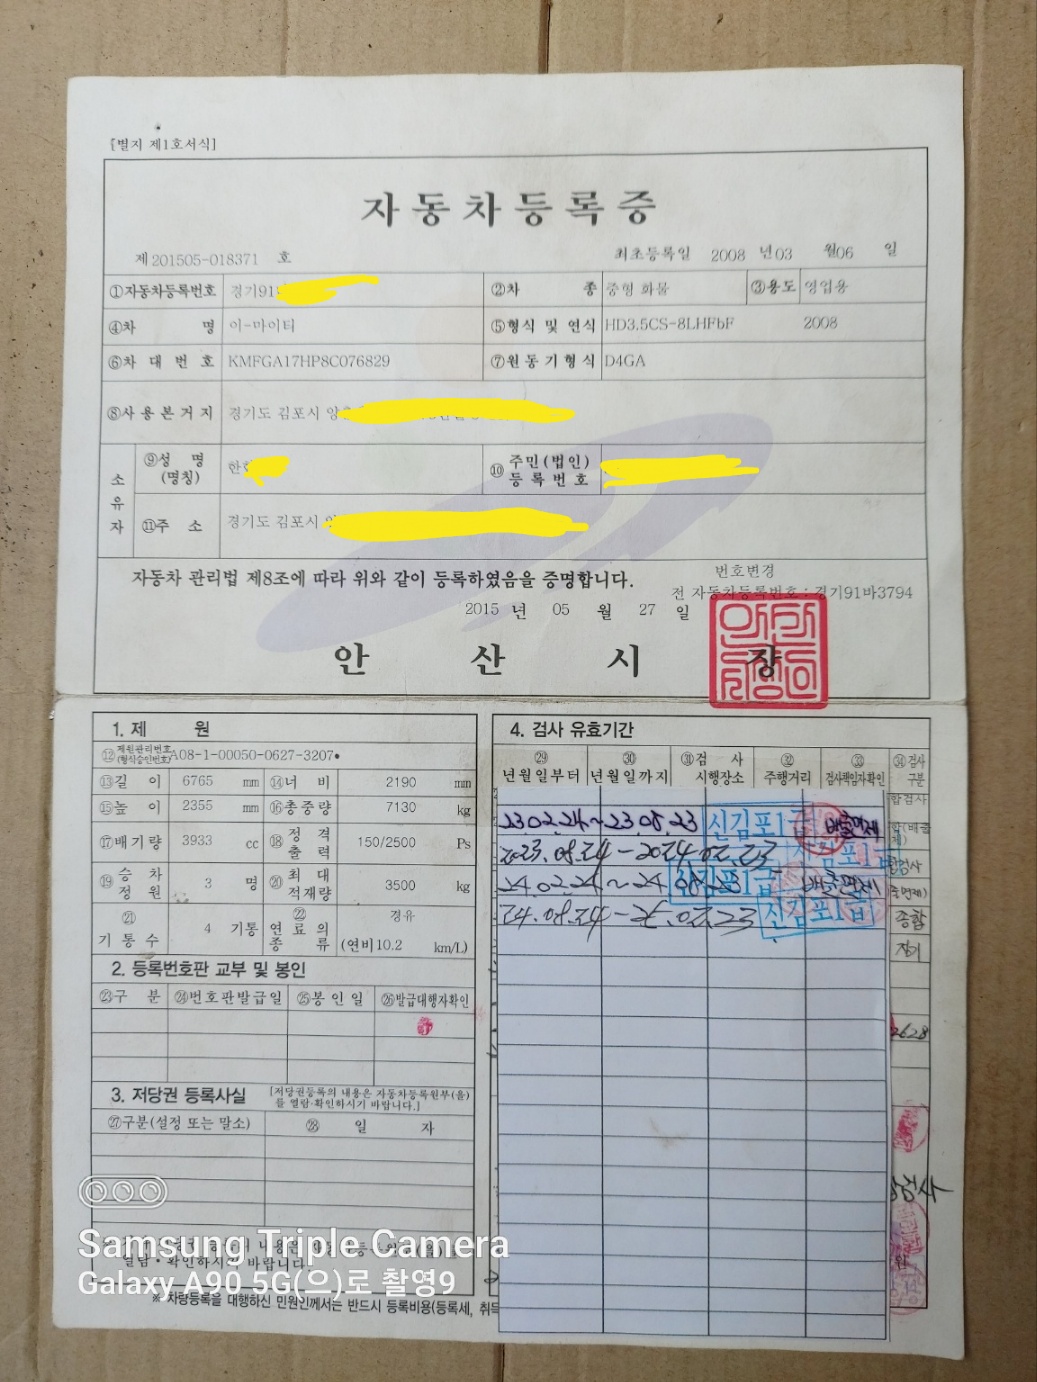 [별지 제1호서식]
자동차등록증
제 201505-018371 호 최초등록일 2008 년 03 월 06 일
①자동차등록번호 경기91 ②차 종 중형 화물 ③용도 영업용
④차 명 이-마이티 ⑤형식 및 연식 HD3.5CS-8LHFbF 2008
⑥차 대 번 호 KMFGA17HP8C076829 ⑦원 동 기 형 식 D4GA
⑧사 용 본 거 지 경기도 김포시
소유자 ⑨성 명 (명칭) 한 ⑩ 주민(법인) 등 록 번 호
⑪주 소 경기도 김포시
자동차 관리법 제8조에 따라 위와 같이 등록하였음을 증명합니다. 번호변경
전 자동차등록번호 : 경기91바3794
2015 년 05 월 27 일
안 산 시 장
1. 제 원
⑫ 제원관리번호 (형식승인번호) A08-1-00050-0627-3207
⑬길 이 6765 mm ⑭너 비 2190 mm
⑮높 이 2355 mm ⑯총중량 7130 kg
⑰배기량 3933 cc ⑱ 정 격 출 력 150/2500 Ps
⑲ 승 차 정 원 3 명 ⑳ 최 대 적재량 3500 kg
㉑ 기 통 수 4 기통 ㉒ 연 료 의 종 류 경유 (연비10.2 km/L)
2. 등록번호판 교부 및 봉인
㉓구 분 ㉔번호판발급일 ㉕봉 인 일 ㉖발급대행자확인
3. 저당권 등록사실 [저당권등록의 내용은 자동차등록원부(을)를 열람·확인하시기 바랍니다.]
㉗구분(설정 또는 말소) ㉘ 일 자
열람·확인하시기 바랍니다.
※ 차량등록을 대행하신 민원인께서는 반드시 등록비용(등록세, 취득
4. 검사 유효기간
㉙ 년월일부터 ㉚ 년월일까지 ㉛검 사 시행장소 ㉜ 주행거리 ㉝ 검사책임자확인 ㉞검사 구분
23.02.24~23.08.23 신김포1급 배출면제
2023.08.24-2024.02.23
24.02.24~24.08.23 신김포1급 배출면제
24.08.24-25.02.23 신김포1급
합검사
종합
정기
2628
Samsung Triple Camera
Galaxy A90 5G(으)로 촬영9